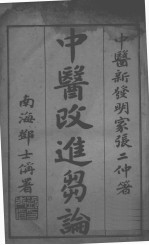 中醫新發明家張二仲著
中醫改進芻論
南海鄧士儕署